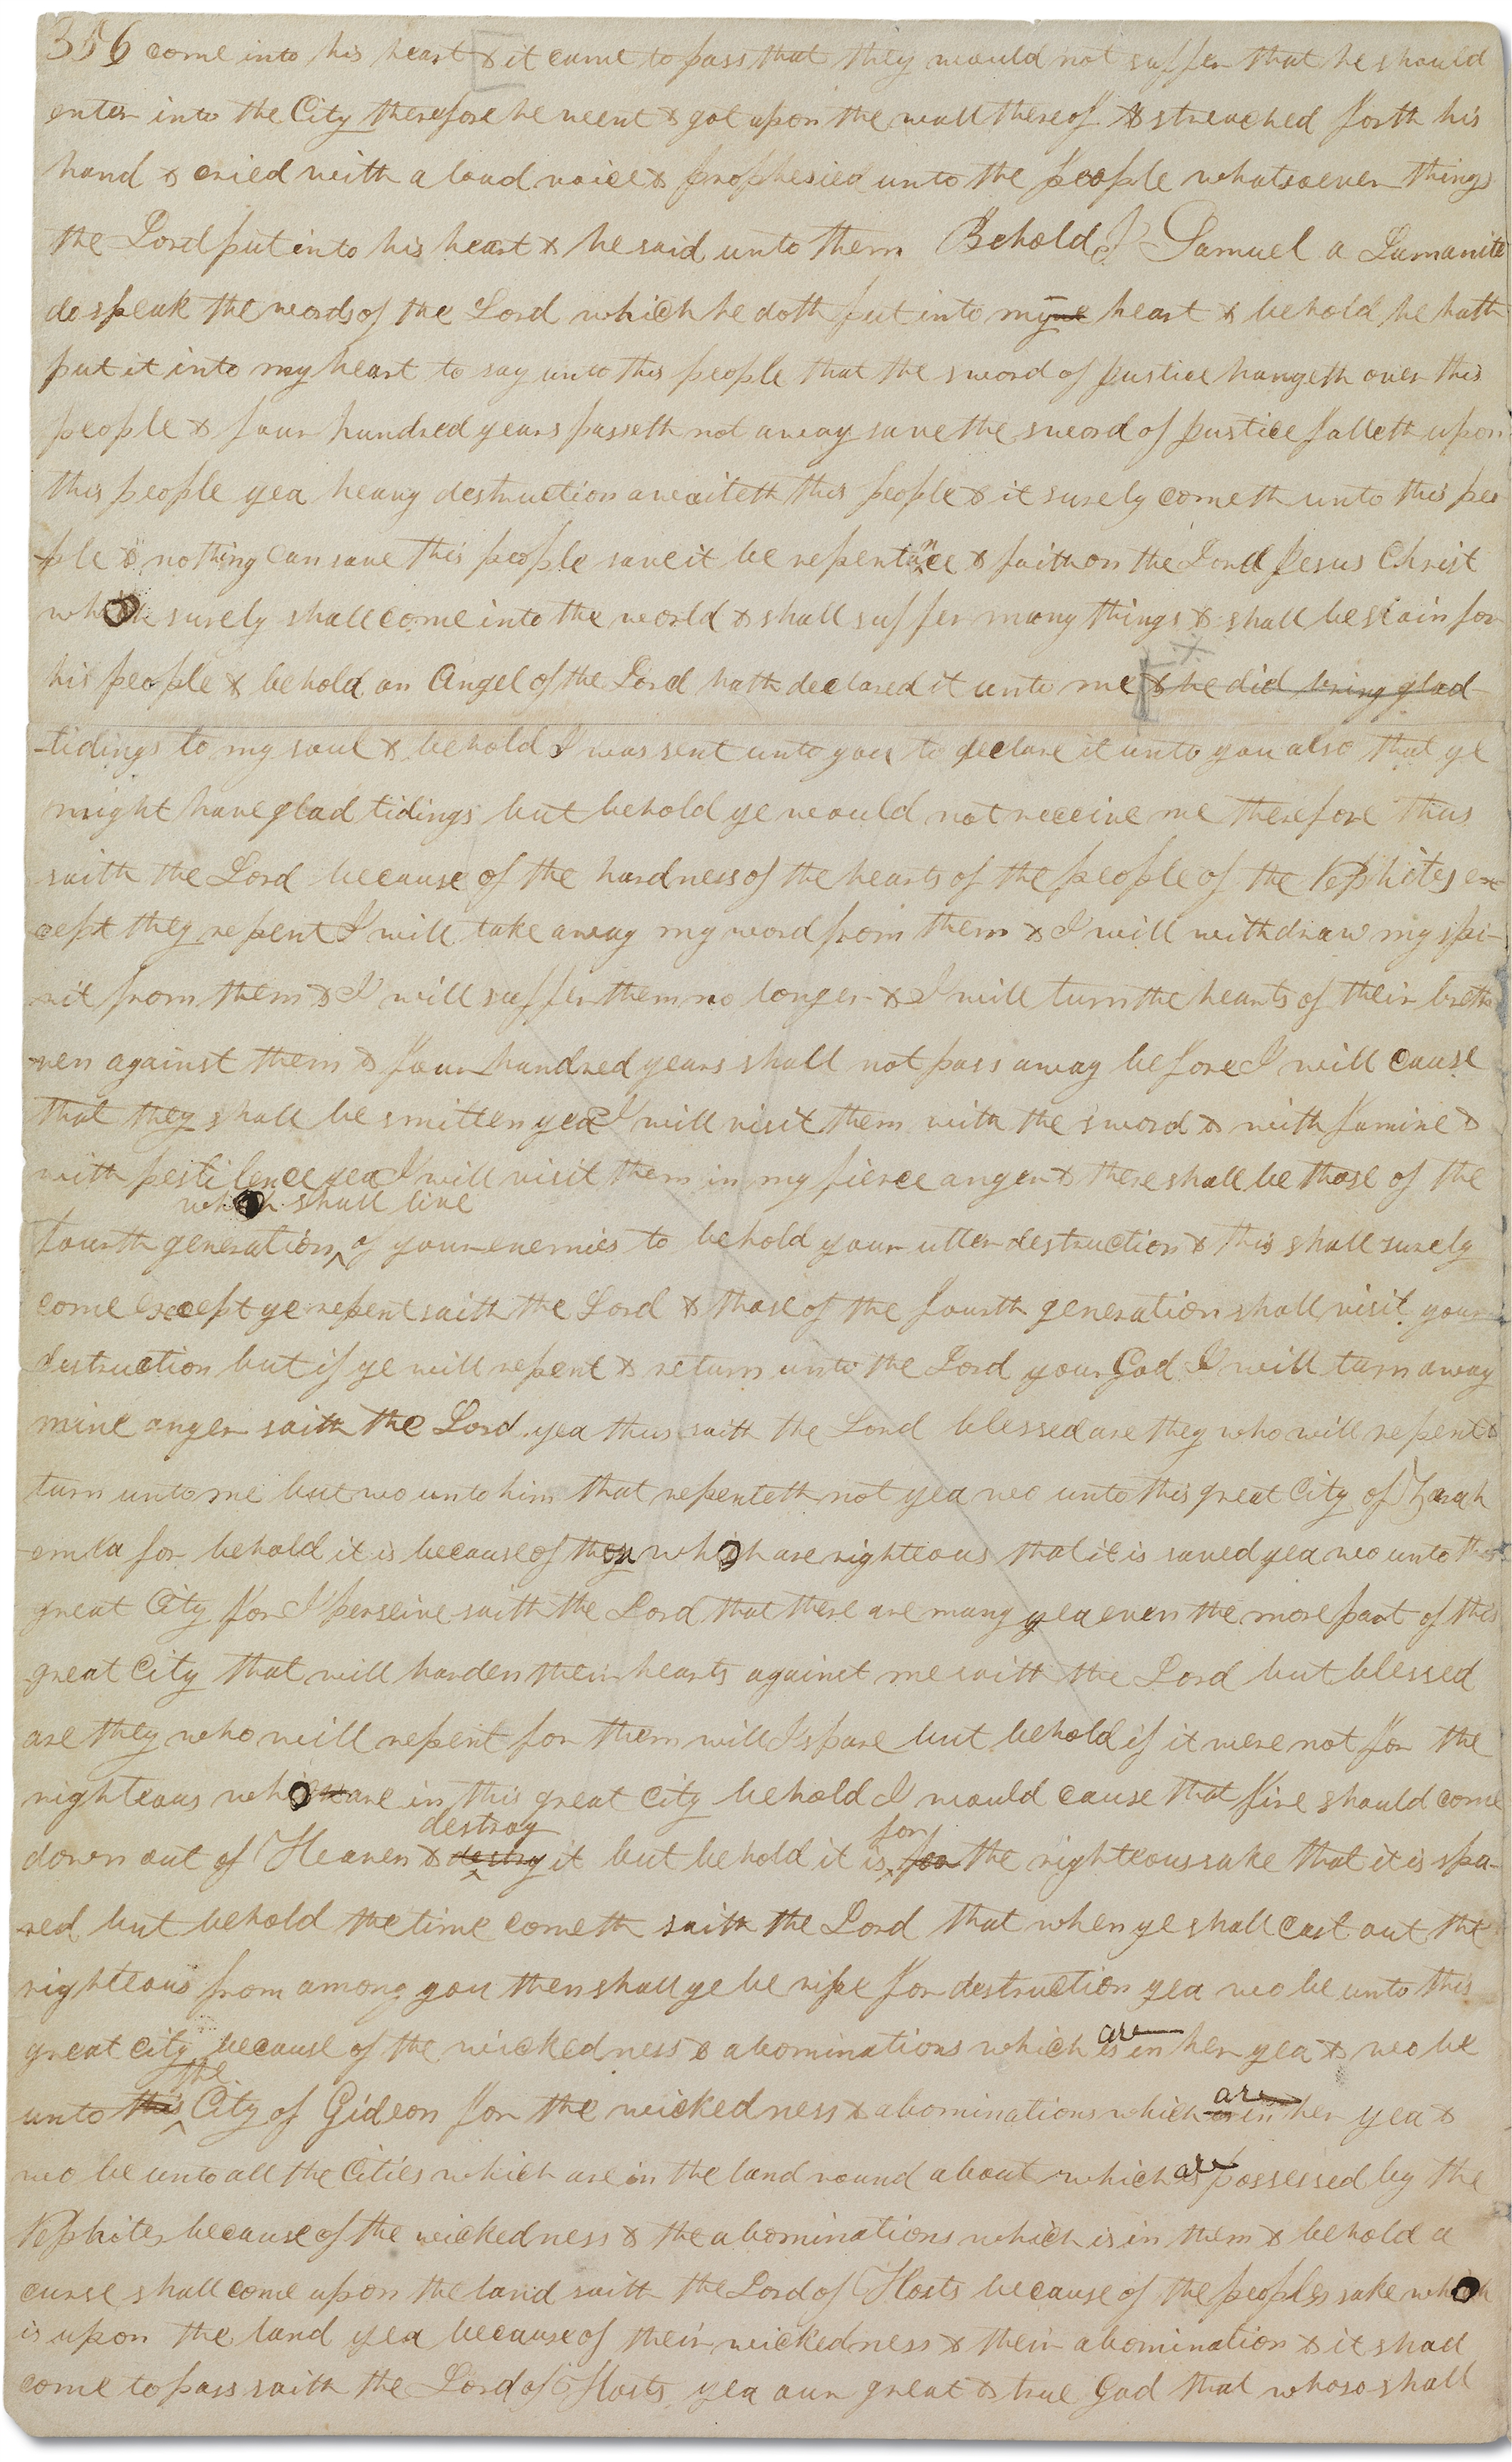 356 come into his heart & it came to pass that they would not suffer that he should
enter into the City therefore he went & got upon the wall thereof & streached forth his
hand & cried with a loud voice & prophesied unto the people whatsoever things
the Lord put into his heart & he said unto them Behold I Samuel a Lamanite
do speak the words of the Lord which he doth put into myne heart & behold he hath
put it into my heart to say unto this people that the sword of justice hangeth over this
people & four hundred years passeth not away save the sword of justice falleth upon
this people yea heavy destruction awaiteth this people & it surely cometh unto this peo
-ple & nothing can save this people save it be repentance & faith on the Lord Jesus Christ
who surely shall come into the world & shall suffer many things & shall be slain for
his people & behold an Angel of the Lord hath declared it unto me & he did bring glad
-tidings to my soul & behold I was sent unto you to declare it unto you also that ye
might have glad tidings but behold ye would not receive me therefore thus
saith the Lord because of the hardness of the hearts of the people of the Nephites ex
cept they repent I will take away my word from them & I will withdraw my spi-
rit from them & I will suffer them no longer & I will turn the hearts of their breth
-ren against them & four hundred years shall not pass away before I will cause
that they shall be smitten yea I will visit them with the sword & with famine &
with pestilence yea I will visit them in my fierce anger & there shall be those of the
who shall live
fourth generation ^ of your enemies to behold your utter destruction & this shall surely
come except ye repent saith the Lord & those of the fourth generation shall visit your
destruction but if ye will repent & return unto the Lord your God I will turn away
mine anger saith the Lord yea thus saith the Lord blessed are they who will repent &
turn unto me but wo unto him that repenteth not yea wo unto this great City of Zarah
-emla for behold it is because of those who are righteous that it is saved yea wo unto this
great City for I perseive saith the Lord that there are many yea even the more part of this
great City that will harden their hearts against me saith the Lord but blessed
are they who will repent for them will I spare but behold if it were not for the
righteous who are in this great City behold I would cause that fire should come
destroy for
down out of Heaven & destry ^ it but behold it is ^ for the righteous sake that it is spa-
-red but behold the time cometh saith the Lord that when ye shall cast out the
righteous from among you then shall ye be ripe for destruction yea wo be unto this
are
great city because of the wickedness & abominations which is in her yea & wo be
the are
unto this ^ City of Gideon for the wickedness & abominations which is in her yea &
wo be unto all the Cities which are in the land round about which are possessed by the
Nephites because of the wickedness & the abominations which is in them & behold a
curse shall come upon the land saith the Lord of Hosts because of the peoples sake who
is upon the land yea because of their wickedness & their abomination & it shall
come to pass saith the Lord of Hosts yea our great & true God that whoso shall